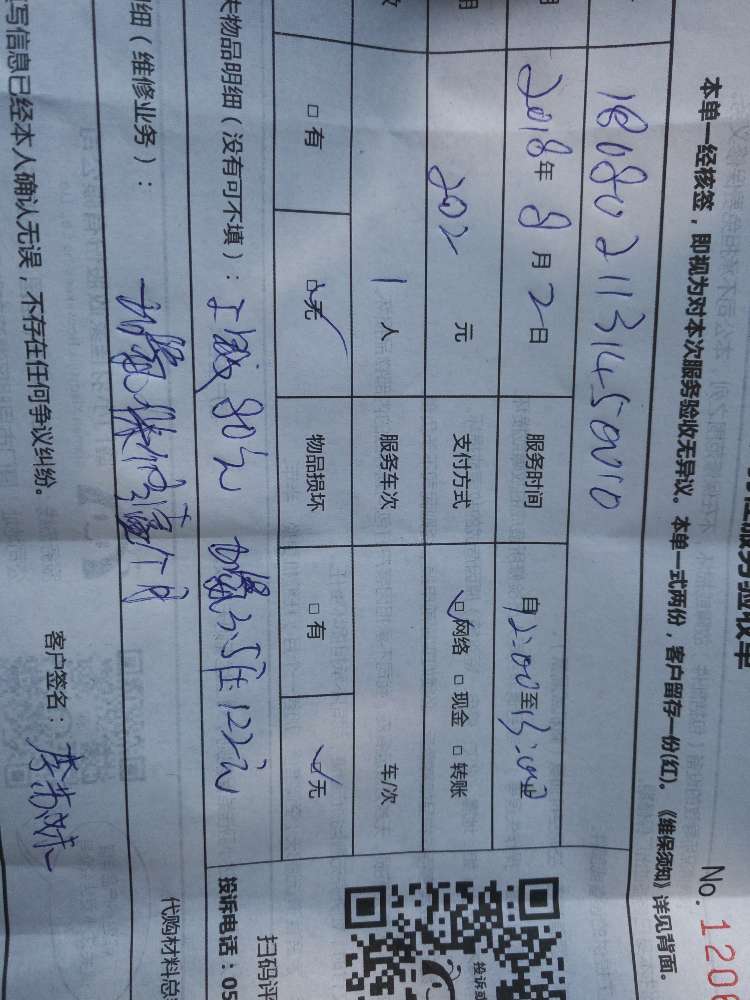 服务验收单
No. 1206
本单一经核签，即视为对本次服务验收无异议。本单一式两份，客户留存一份(红)。《维保须知》详见背面。
1808021131450010
2018年8月2日 服务时间 自12:00至13:00
202 元 支付方式 网络 现金 转账
1人 服务车次 车次
有 无 物品损坏 有 无
失物品明细（没有可不填）： 上门 80元 加氟3.5压 122元
投诉电话：05
细（维修业务）：
代购材料总
写信息已经本人确认无误，不存在任何争议纠纷。
客户签名：
扫码评
投诉或